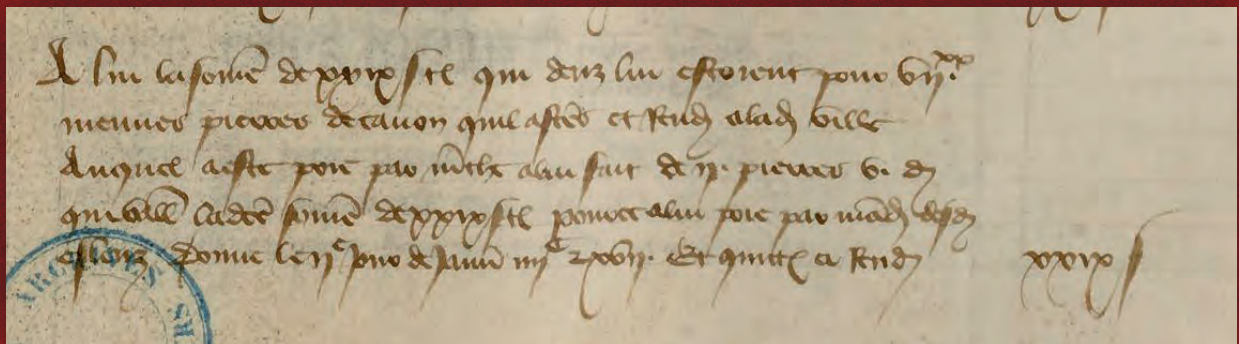 A lui la some de xxix s t qui deuz lui estoient pour vii xx
menues pierres de canon quil a fces et rend a lad ville
Auquel a este poie par mche a lui fait de ii. pierres v. d
qui vall ladce some de xxix s t pour ce a lui poie par mad desd
esleuz donne le iie jour de janv iiiic lxvii. Et quitt cy rend xxix s